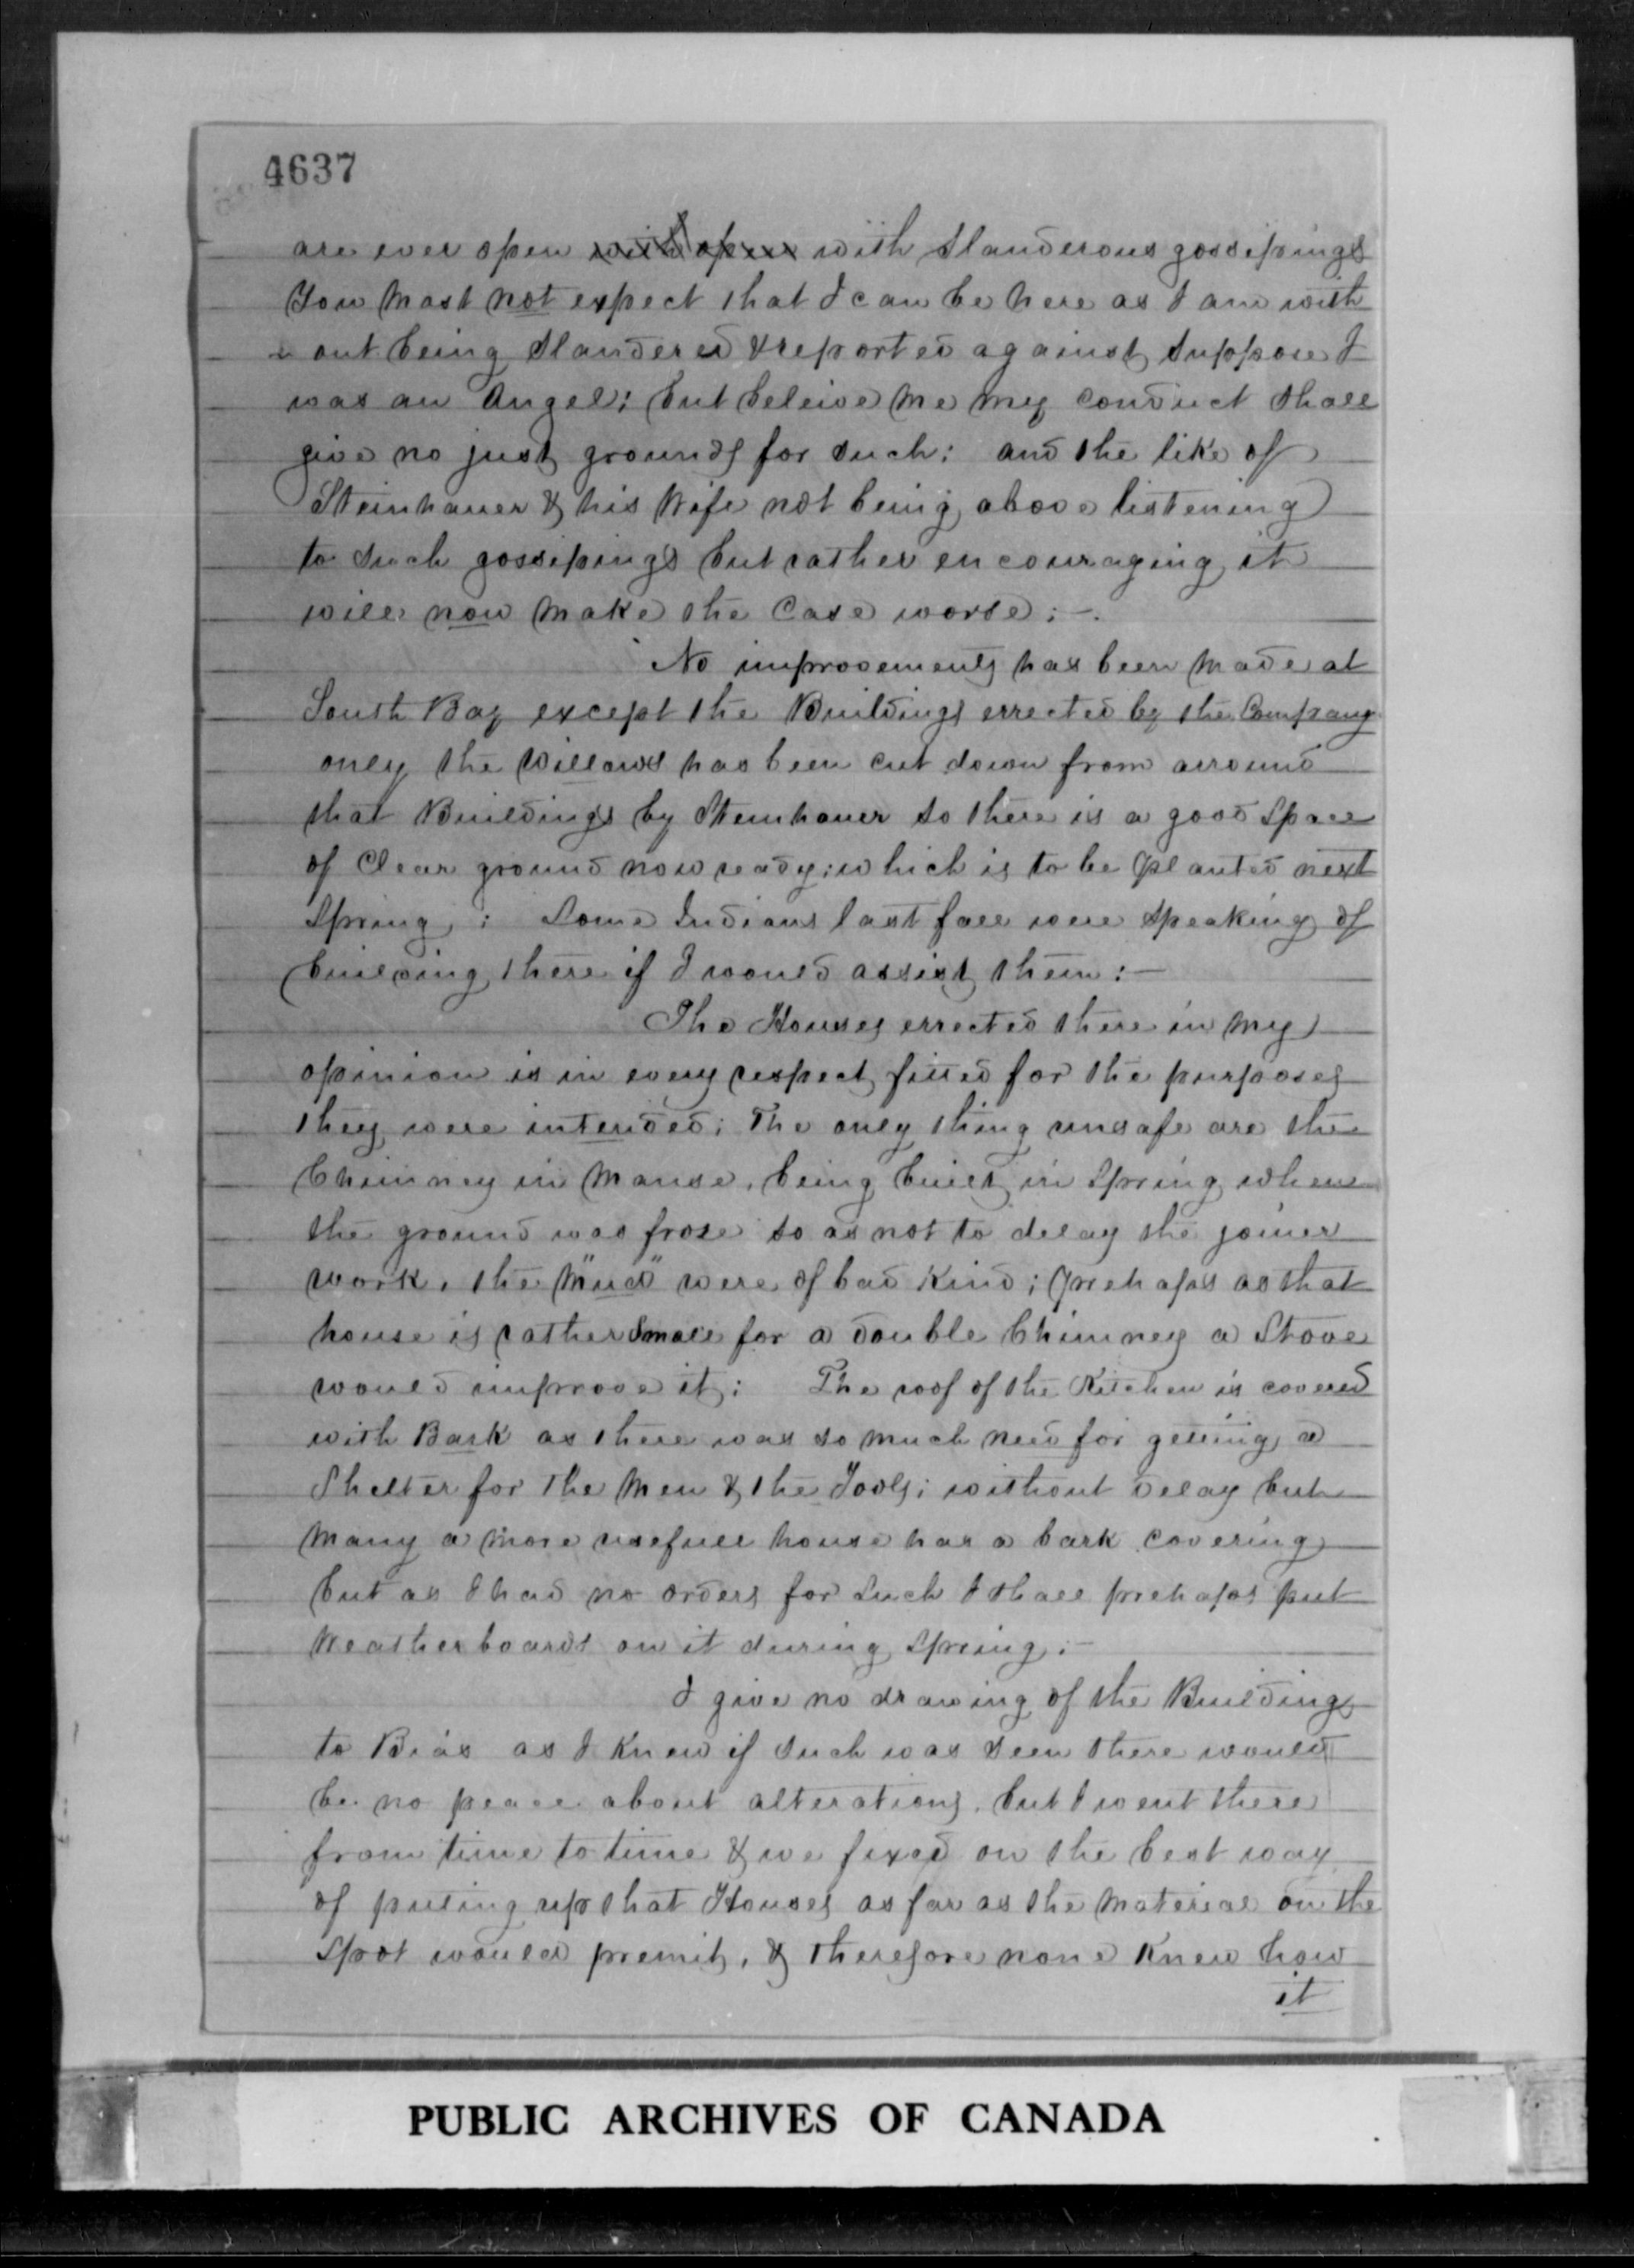 4637
are ever open with open with Slanderous gossipings
You Most not expect that I can be here as I am with
out being Slandered & reported against Suppose I
was an Angel; but beleive me my conduct Shall
give no just grounds for Such; and the like of
Steinhauer & his Wife not being above listening
to Such gossipings but rather encouraging it
will now make the Case worse; -.
No improvements has been Made at
South Bay except the Buildings errected by the Company
only the Willows has been cut down from arround
that Buildings by Steinhauer so there is a good Space
of Clear ground now ready; which is to be planted next
Spring ; Some Indians last fall were Speaking of
building there if I would assist them :-
The Houses errected there in my
opinion is in every respect fitted for the purposes
they were intended; The only thing unsafe are the
Chimney in Manse, being built in Spring when
the ground was froze so as not to delay the joiner
work, the "Mud" were of bad Kind; prehaps as that
house is rather Small for a double Chimney a Stove
would improve it; The roof of the Kitchen is covered
with Bark as there was so much need for getting a
Shelter for the Men & the Tools; without delay but
Many a more usefull house has a bark covering
but as I had no orders for Such I Shall prehaps put
Weatherboards on it during Spring ;-
I give no drawing of the Buildings
to Bias as I Knew if Such was Seen there would
be no peace about alterations, but I went there
from time to time & we fixed on the best way
of puting up that Houses as far as the Material on the
Spot would premit, & therefore none Knew how
it
PUBLIC ARCHIVES OF CANADA